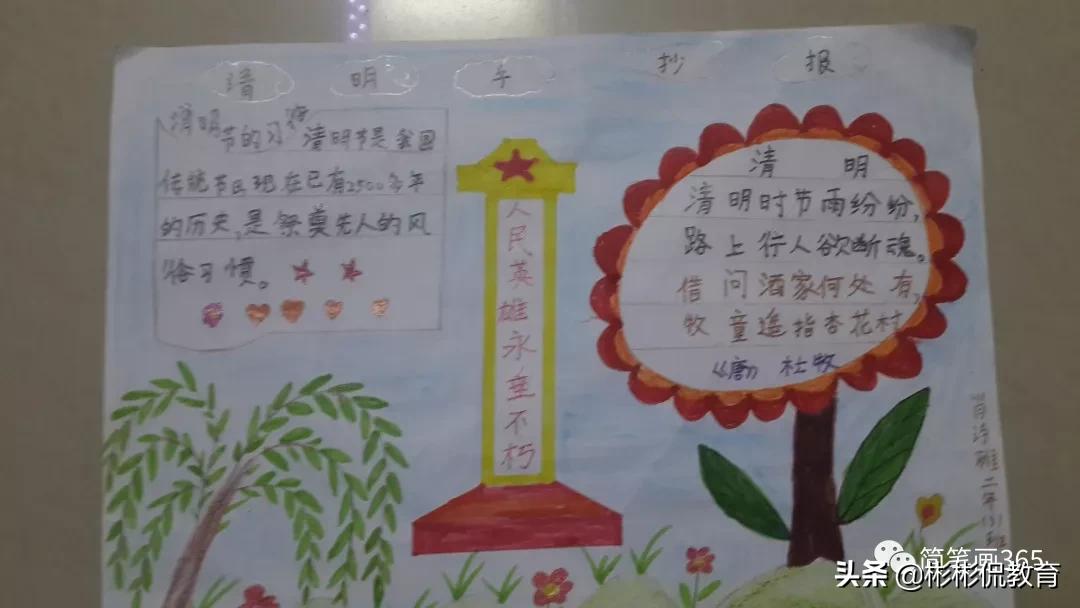 清 明 手 抄 报
清明节的习俗 清明节是我国
传统节日现在已有2500多年
的历史,是祭奠先人的风
俗习惯。
人民英雄永垂不朽
清 明
清明时节雨纷纷,
路上行人欲断魂。
借问酒家何处有,
牧童遥指杏花村
《唐》 杜牧
二年(3)班
简笔画365
头条 @彬彬侃教育